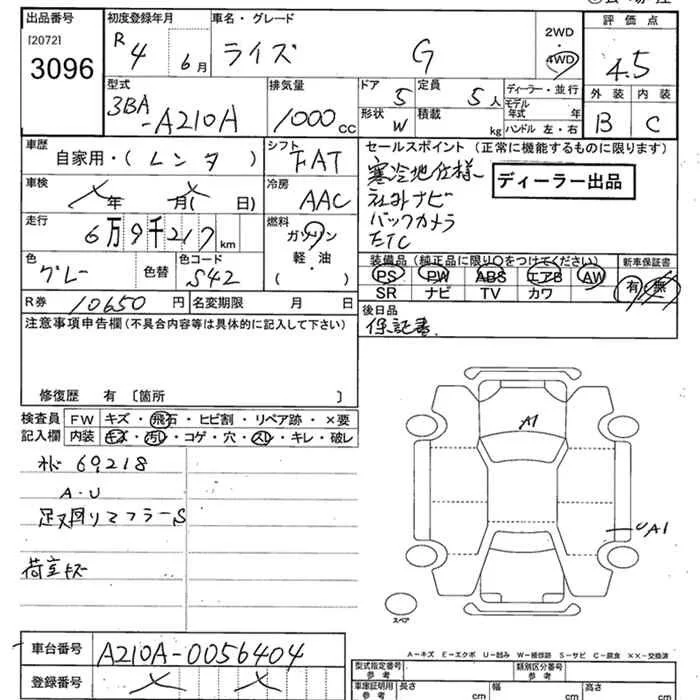 出品番号 初度登録年月 車名・グレード 2WD 4WD 評価点
[2072] 3096 R4年 6月 ライズ G 4.5
外装 内装
B C
型式 排気量 ドア 定員 ディーラー・並行
3BA-A210A 1000cc 5 5人 モデル年式 年
形状 積載 ハンドル 左・右
W kg
車歴 シフト セールスポイント (正常に機能するものに限ります)
自家用・(レンタ) FAT 寒冷地仕様
ディーラー出品
車検 年 月( 日) 冷房 AAC ナビ
バックカメラ
ETC
走行 6万9千217km 燃料 ガソリン 軽・油 ( )
色 グレー 色替 色コード S42
装備品 (純正品に限り○をつけてください) 新車保証書
PS PW ABS エアB AW 有 無
SR ナビ TV カワ
R券 10650円 名変期限 月 日 後日品
保証書
注意事項申告欄(不具合内容等は具体的に記入して下さい)
修復歴 有 〔箇所 〕
検査員記入欄 FW キズ・飛石・ヒビ割・リペア跡・×要
内装 キズ・汚レ・コゲ・穴・スレ・キレ・破レ
69218
A・U
足又回りマフラーS
荷室キズ
A1
UA1
スペア
A-キズ E-エクボ U-凹み W-補修跡 S-サビ C-腐食 ××-交換済
車台番号 A210A-0056404
登録番号
型式指定番号 参考 類別区分番号 参考
車庫証明用 参考 長さ cm 幅 cm 高さ cm